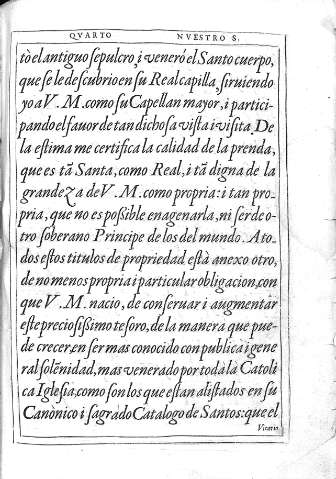 QVARTO NVESTRO S.
tò el antiguo sepulcro, i venerò el Santo cuerpo,
que se le descubrio en su Real capilla, siruiendo
yo a V. M. como su Capellan mayor, i partici-
pando el fauor de tan dichosa vista i visita. De
la estima me certifica la calidad de la prenda,
que es tã Santa, como Real, i tã digna de la
grandeza de V. M. como propria: i tan pro-
pria, que no es possible enagenarla, ni ser de o-
tro soberano Principe de los del mundo. A to-
dos estos titulos de propriedad està anexo otro,
de no menos propria i particular obligacion, con
que V. M. nacio, de conseruar i augmentar
este preciosissimo tesoro, de la manera que pue-
de crecer, en ser mas conocido con publica i gene
ral solenidad, mas venerado por toda la Catoli
ca Iglesia, como son los que estan alistados en su
Canònico i sagrado Catalogo de Santos: que el
Vicario